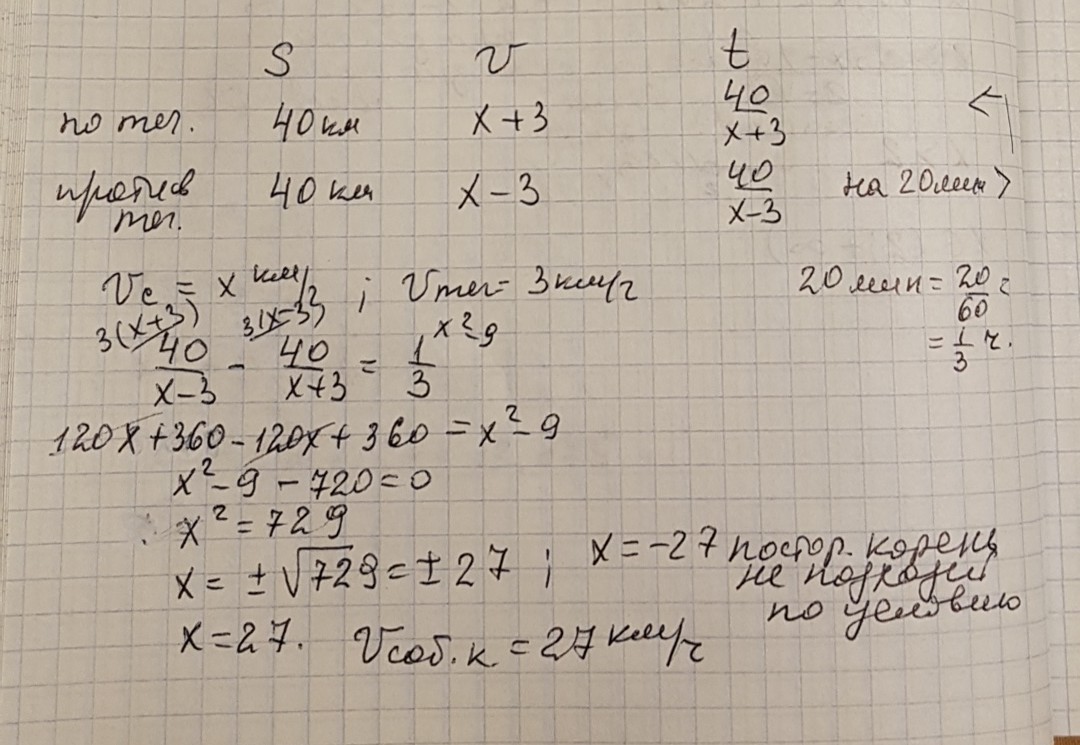 S v t
по теч. 40 км x+3 40/(x+3) <
против 40 км x-3 40/(x-3) на 20 мин >
теч.
Vc = x км/ч ; Vтеч = 3 км/ч 20 мин = 20/60 =
3(x+3) 3(x-3) x²-9 = 1/3 ч.
40/(x-3) - 40/(x+3) = 1/3
120x+360-120x+360 = x²-9
x²-9-720=0
x²=729
x=±√729=±27 ; x=-27 постор. корень
не подходит
по условию
x=27. Vсоб.к. = 27 км/ч